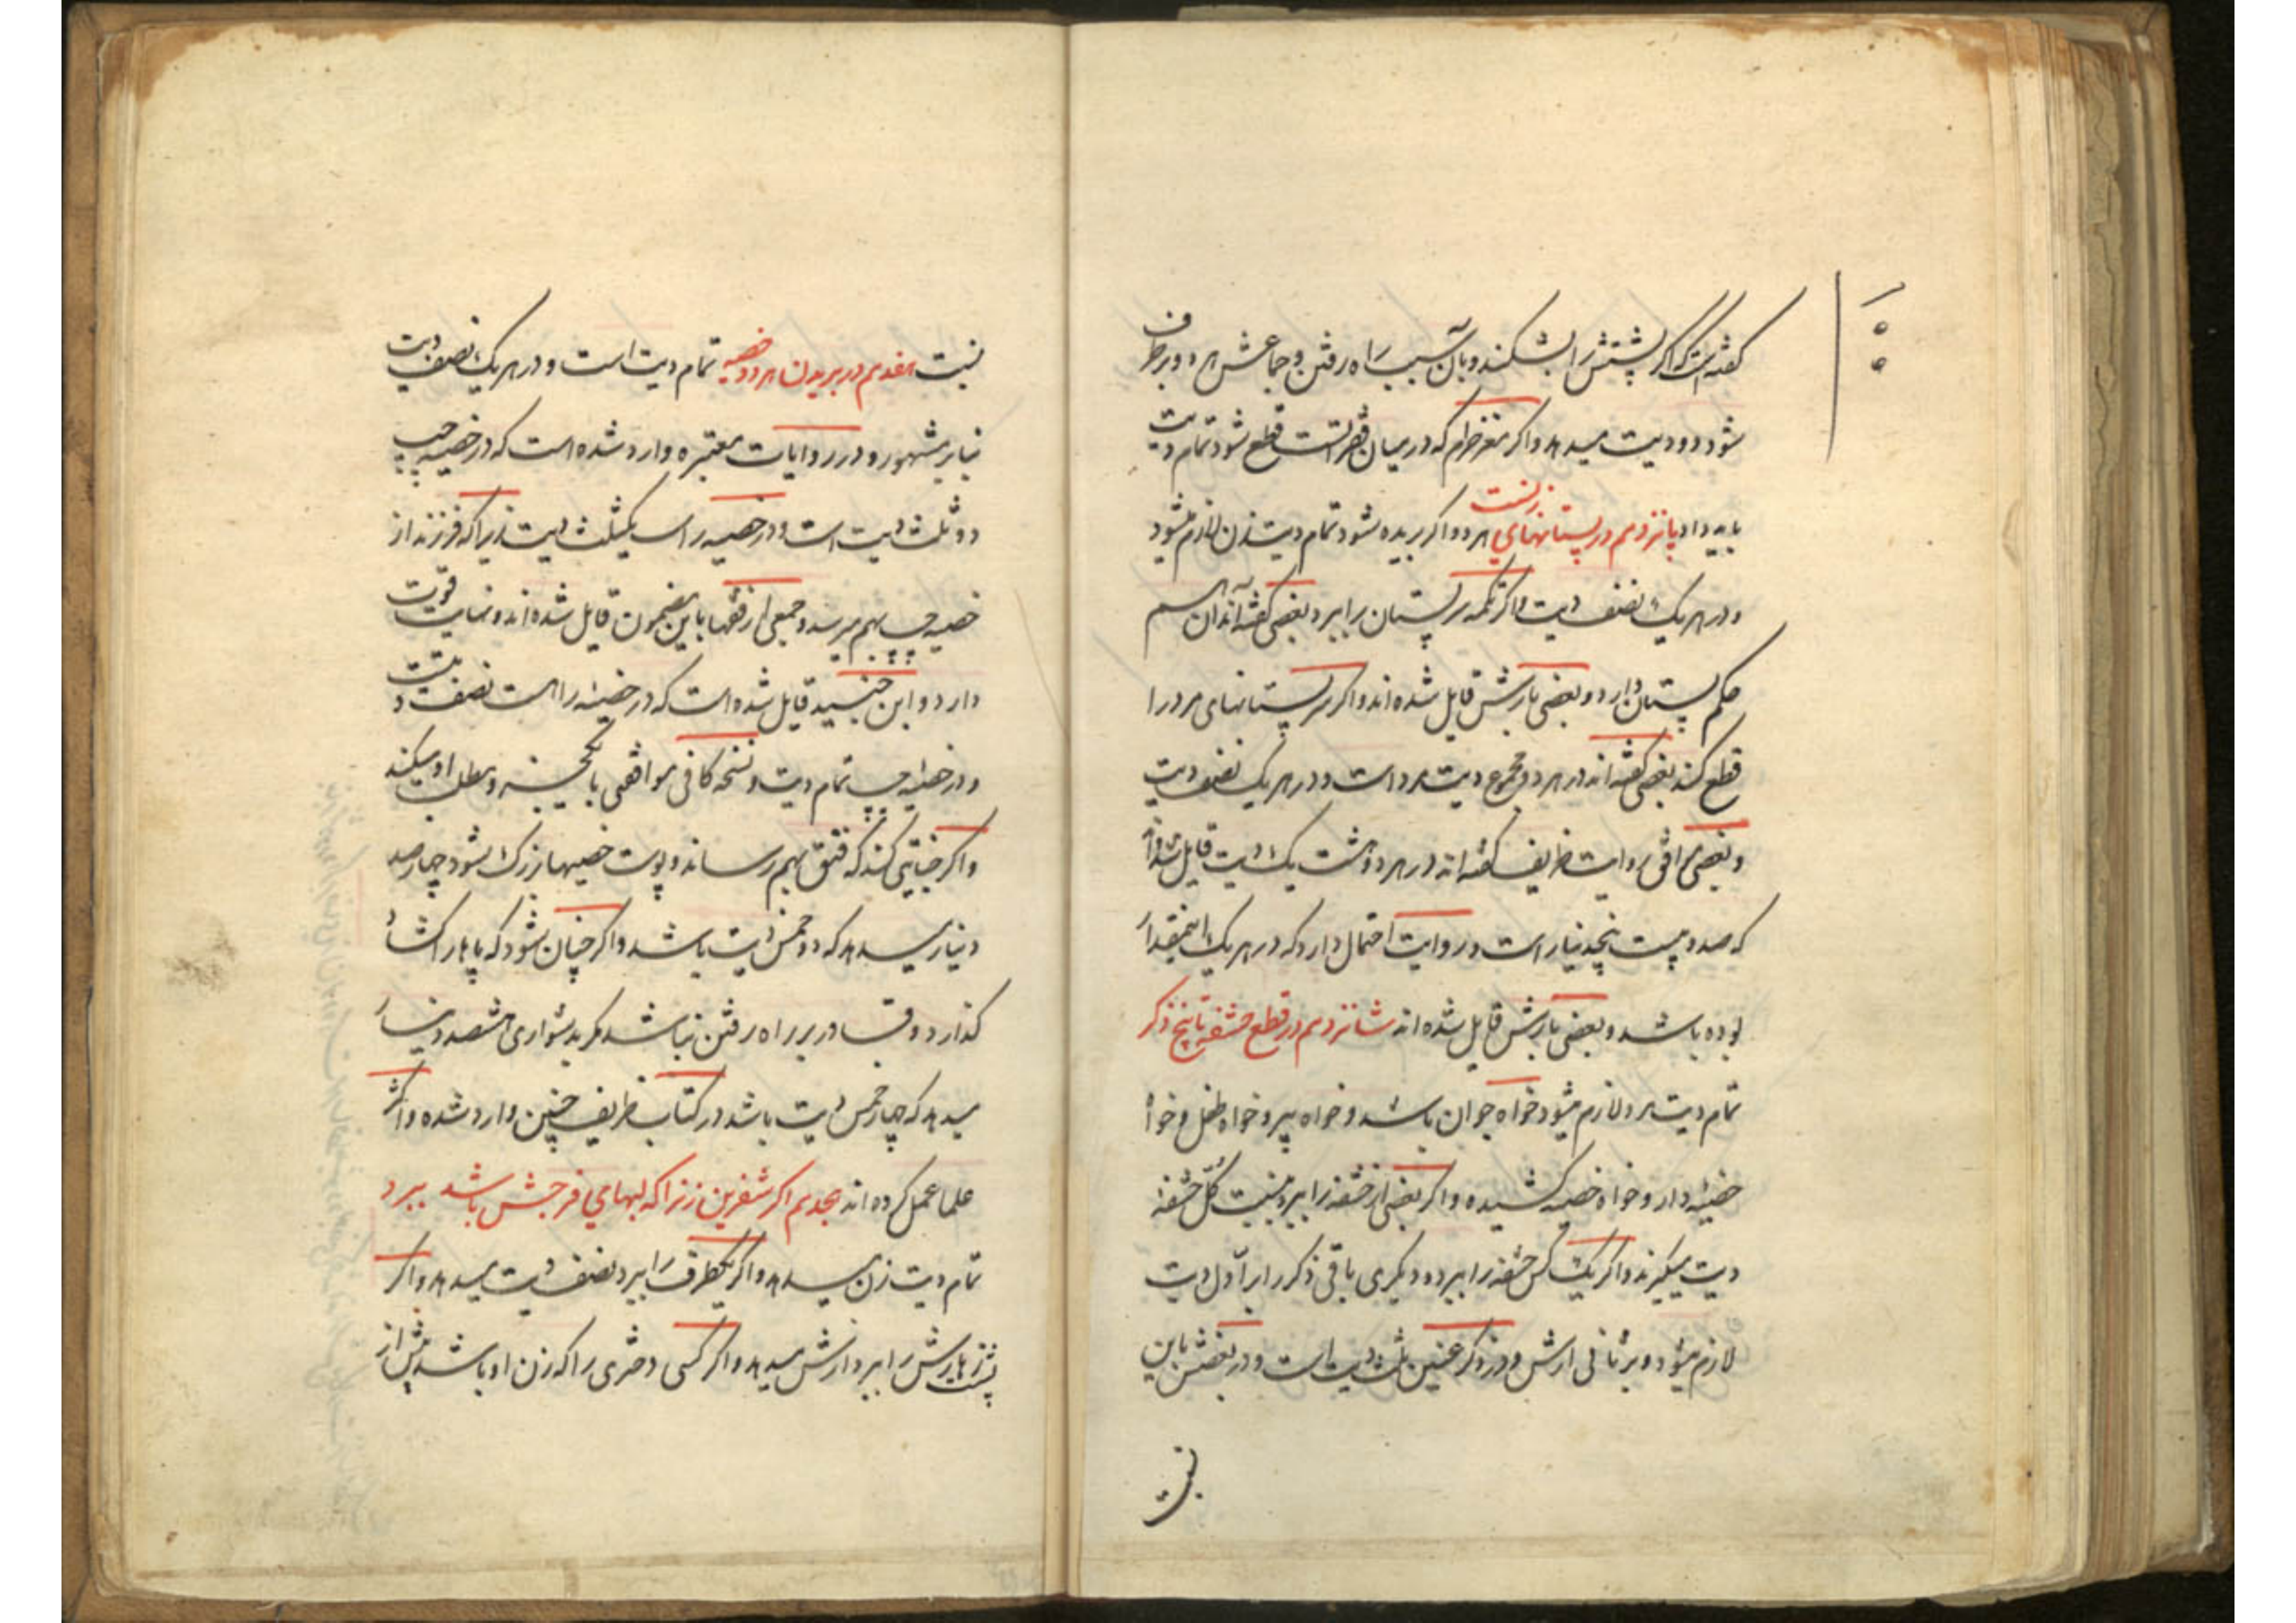 گفته است که اگر پشتش را بشکنند و بآن سبب راه رفتن و جماعش هر دو برطرف
شود دو دیت میدهد و اگر مغز حرام که در میان فقرات است قطع شود تمام دیت
باید داد پانزدهم در پستانهای زنست هر دو اگر بریده شود تمام دیت زن لازم میشود
و در هر یک نصف دیت و اگر تکمه سر پستان را ببرد بعضی گفته‌اند آن هم
حکم پستان دارد و بعضی بارش قایل شده‌اند و اگر سر پستانهای مرد را
قطع کند بعضی گفته‌اند در هر دو مجموع دیت مرد است و در هر یک نصف دیت
و بعضی موافق روایت ظریف گفته‌اند در هر دو هشت یک دیت قایل شده‌اند
که صد و بیست و پنج دینار است و روایت احتمال دارد که در هر یک اینمقدار
بوده باشد و بعضی بارش قایل شده‌اند شانزدهم در قطع حشفه تا بیخ ذکر
تمام دیت مرد لازم میشود خواه جوان باشد و خواه پیر و خواه طفل و خواه
خصیه دار و خواه خصیه کشیده و اگر بعضی از حشفه را ببرد بنسبت کل حشفه
دیت میگیرند و اگر یک کس حشفه را ببرد و دیگری باقی ذکر را بر اول دیت
لازم میشود و بر ثانی ارش و در ذکر عنین ثلث دیت است و در بعضش باین
نسبت
نسبت هفدهم در بریدن هر دو خصیه تمام دیت است و در هر یک نصف دیت
بنابر مشهور و در روایات معتبره وارد شده است که در خصیه چپ
دو ثلث دیت است و در خصیه راست یکثلث دیت زیرا که فرزند از
خصیه چپ بهم میرسد و جمعی از فقها باین مضمون قایل شده‌اند و نهایت قوت
دارد و ابن جنید قایل شده است که در خصیه راست نصف دیت
و در خصیه چپ تمام دیت و نسخه کافی موافقی با
و اگر جنایتی کند که فتق بهم رساند و پوست خصیها بزرگ شود چهارصد
دینار میدهد که دو خمس دیت باشد و اگر چنان شود که پاها را گشاده
گذارد و قادر بر راه رفتن نباشد مگر بدشواری هشتصد دینار
میدهد که چهار خمس دیت باشد در کتاب ظریف چنین وارد شده و اکثر
علما عمل کرده‌اند هجدهم اگر شفرین زنرا که لبهای فرجش باشد ببرد
تمام دیت زن میدهد و اگر یکطرف را ببرد نصف دیت میدهد و اگر
پشت زهارش را ببرد ارش میدهد و اگر کسی دختری را که زن او باشد پیش از